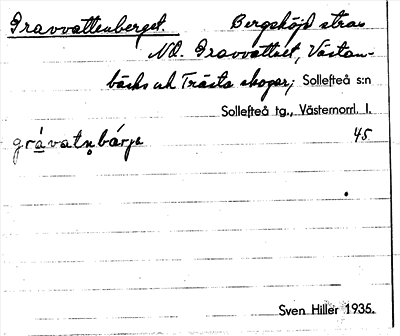 Gravvattenberget. Bergshöjd strax
NO. Gravvattnet, Västan-
bäcks och Trästa skogar, Sollefteå s:n
Sollefteå tg., Västernorrl. l.
grávatṇbárjə 45
Sven Hiller 1935.